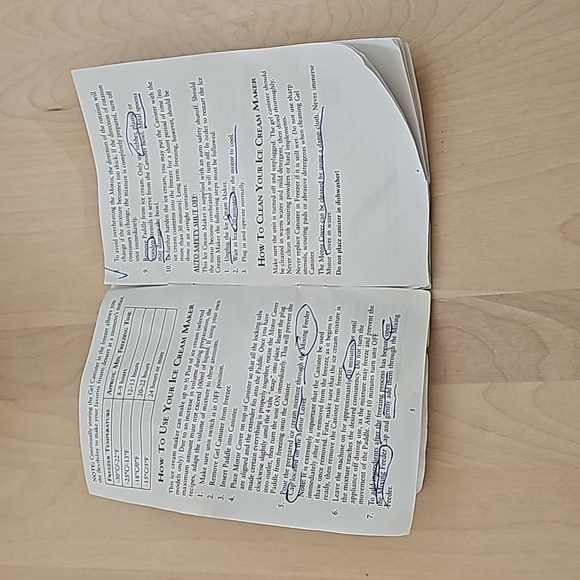 NOTE: By continually storing the Gel Canister in the freezer allows you
the flexibility to make your favorite frozen desserts at a moment's notice.
FREEZER TEMPERATURE APPROX. MIN. FREEZING TIME
-30°C/-22°F 8-9 hours
-25°C/-13°F 12-13 hours
-18°C/0°F 20-22 hours
-15°C/5°F 24 hours or more
HOW TO USE YOUR ICE CREAM MAKER
1. Make sure unit switch is in OFF position.
2. Remove Gel Canister from freezer.
3. Insert Paddle into Canister.
4. Place Motor Cover on top of Canister so that all the locking tabs
are aligned and the extended stem fits into the Paddle. Once you have
made certain everything is properly together, rotate the Motor Cover
clockwise slightly until the 4 tabs "snap" into place. Insert the plug
into outlet, then turn the unit ON immediately. This will prevent the
Paddle from freezing onto the Canister.
5. Pour the prepared ice cream mixture through the Mixing Feeder
Cap located on the Motor Cover.
NOTE: It is extremely important that the Canister be used
immediately after it is removed from the freezer, as it begins to
thaw once removed. First, make sure that the ice cream mixture is
ready, then remove the Canister from freezer.
6. Leave the machine on for approximately minutes until
the mixture reaches the desired consistency. Do not turn the
appliance off during use, as the mixture may freeze and prevent the
movement of the Paddle. After 10 minutes turn unit OFF.
7. To add ingredients after the freezing process has begun, open
the Mixing Feeder Cap and gently add them through the Mixing
Feeder.
5
To avoid overheating the Motor, the direction of the rotation will
change if the mixture becomes too thick. If the direction of rotation
continues to change, the mixture is completely prepared, turn off
unit immediately.
9. Remove Paddle from ice cream. Only use rubber, plastic or
wooden utensils to serve from the Canister bowl.
10. To further harden the ice cream, you may put the Canister with the
ice cream contents into the freezer for a short period of time (no
more than 30 minutes). Long term freezing, however, should be
done in an airtight container.
AUTO SAFETY SHUT OFF
This Ice Cream Maker is supplied with an auto safety shutoff. Should
the motor become overheated it will turn off. In order to restart the Ice
Cream Maker the following steps must be followed:
1. Unplug the Ice Cream Maker.
2. Wait at least for the motor to cool.
3. Plug in and operate normally.
HOW TO CLEAN YOUR ICE CREAM MAKER
Make sure the unit is turned off and unplugged. The gel canister should
be cleaned in warm water and mild detergent, then dried thoroughly.
Never clean with scouring powders or hard implements.
Never replace Canister in Freezer if it is still wet. Do not use sharp
utensils, scouring pads or abrasive detergents when cleaning Gel
Canister.
The Motor Cover can be cleaned by using a damp cloth. Never immerse
Motor Cover in water.
Do not place canister in dishwasher!